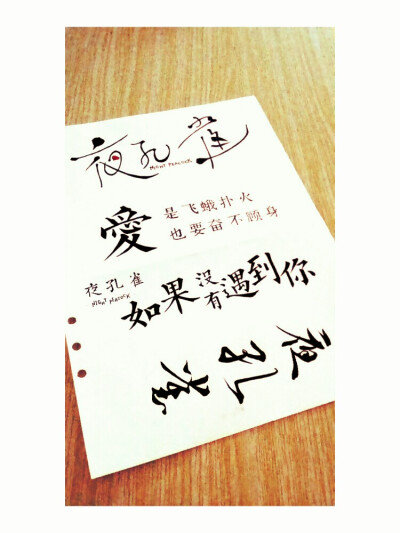 夜孔雀
NIGHT PEACOCK
愛
是飞蛾扑火
也要奋不顾身
夜孔雀
NIGHT PEACOCK
如果没有遇到你
夜孔雀